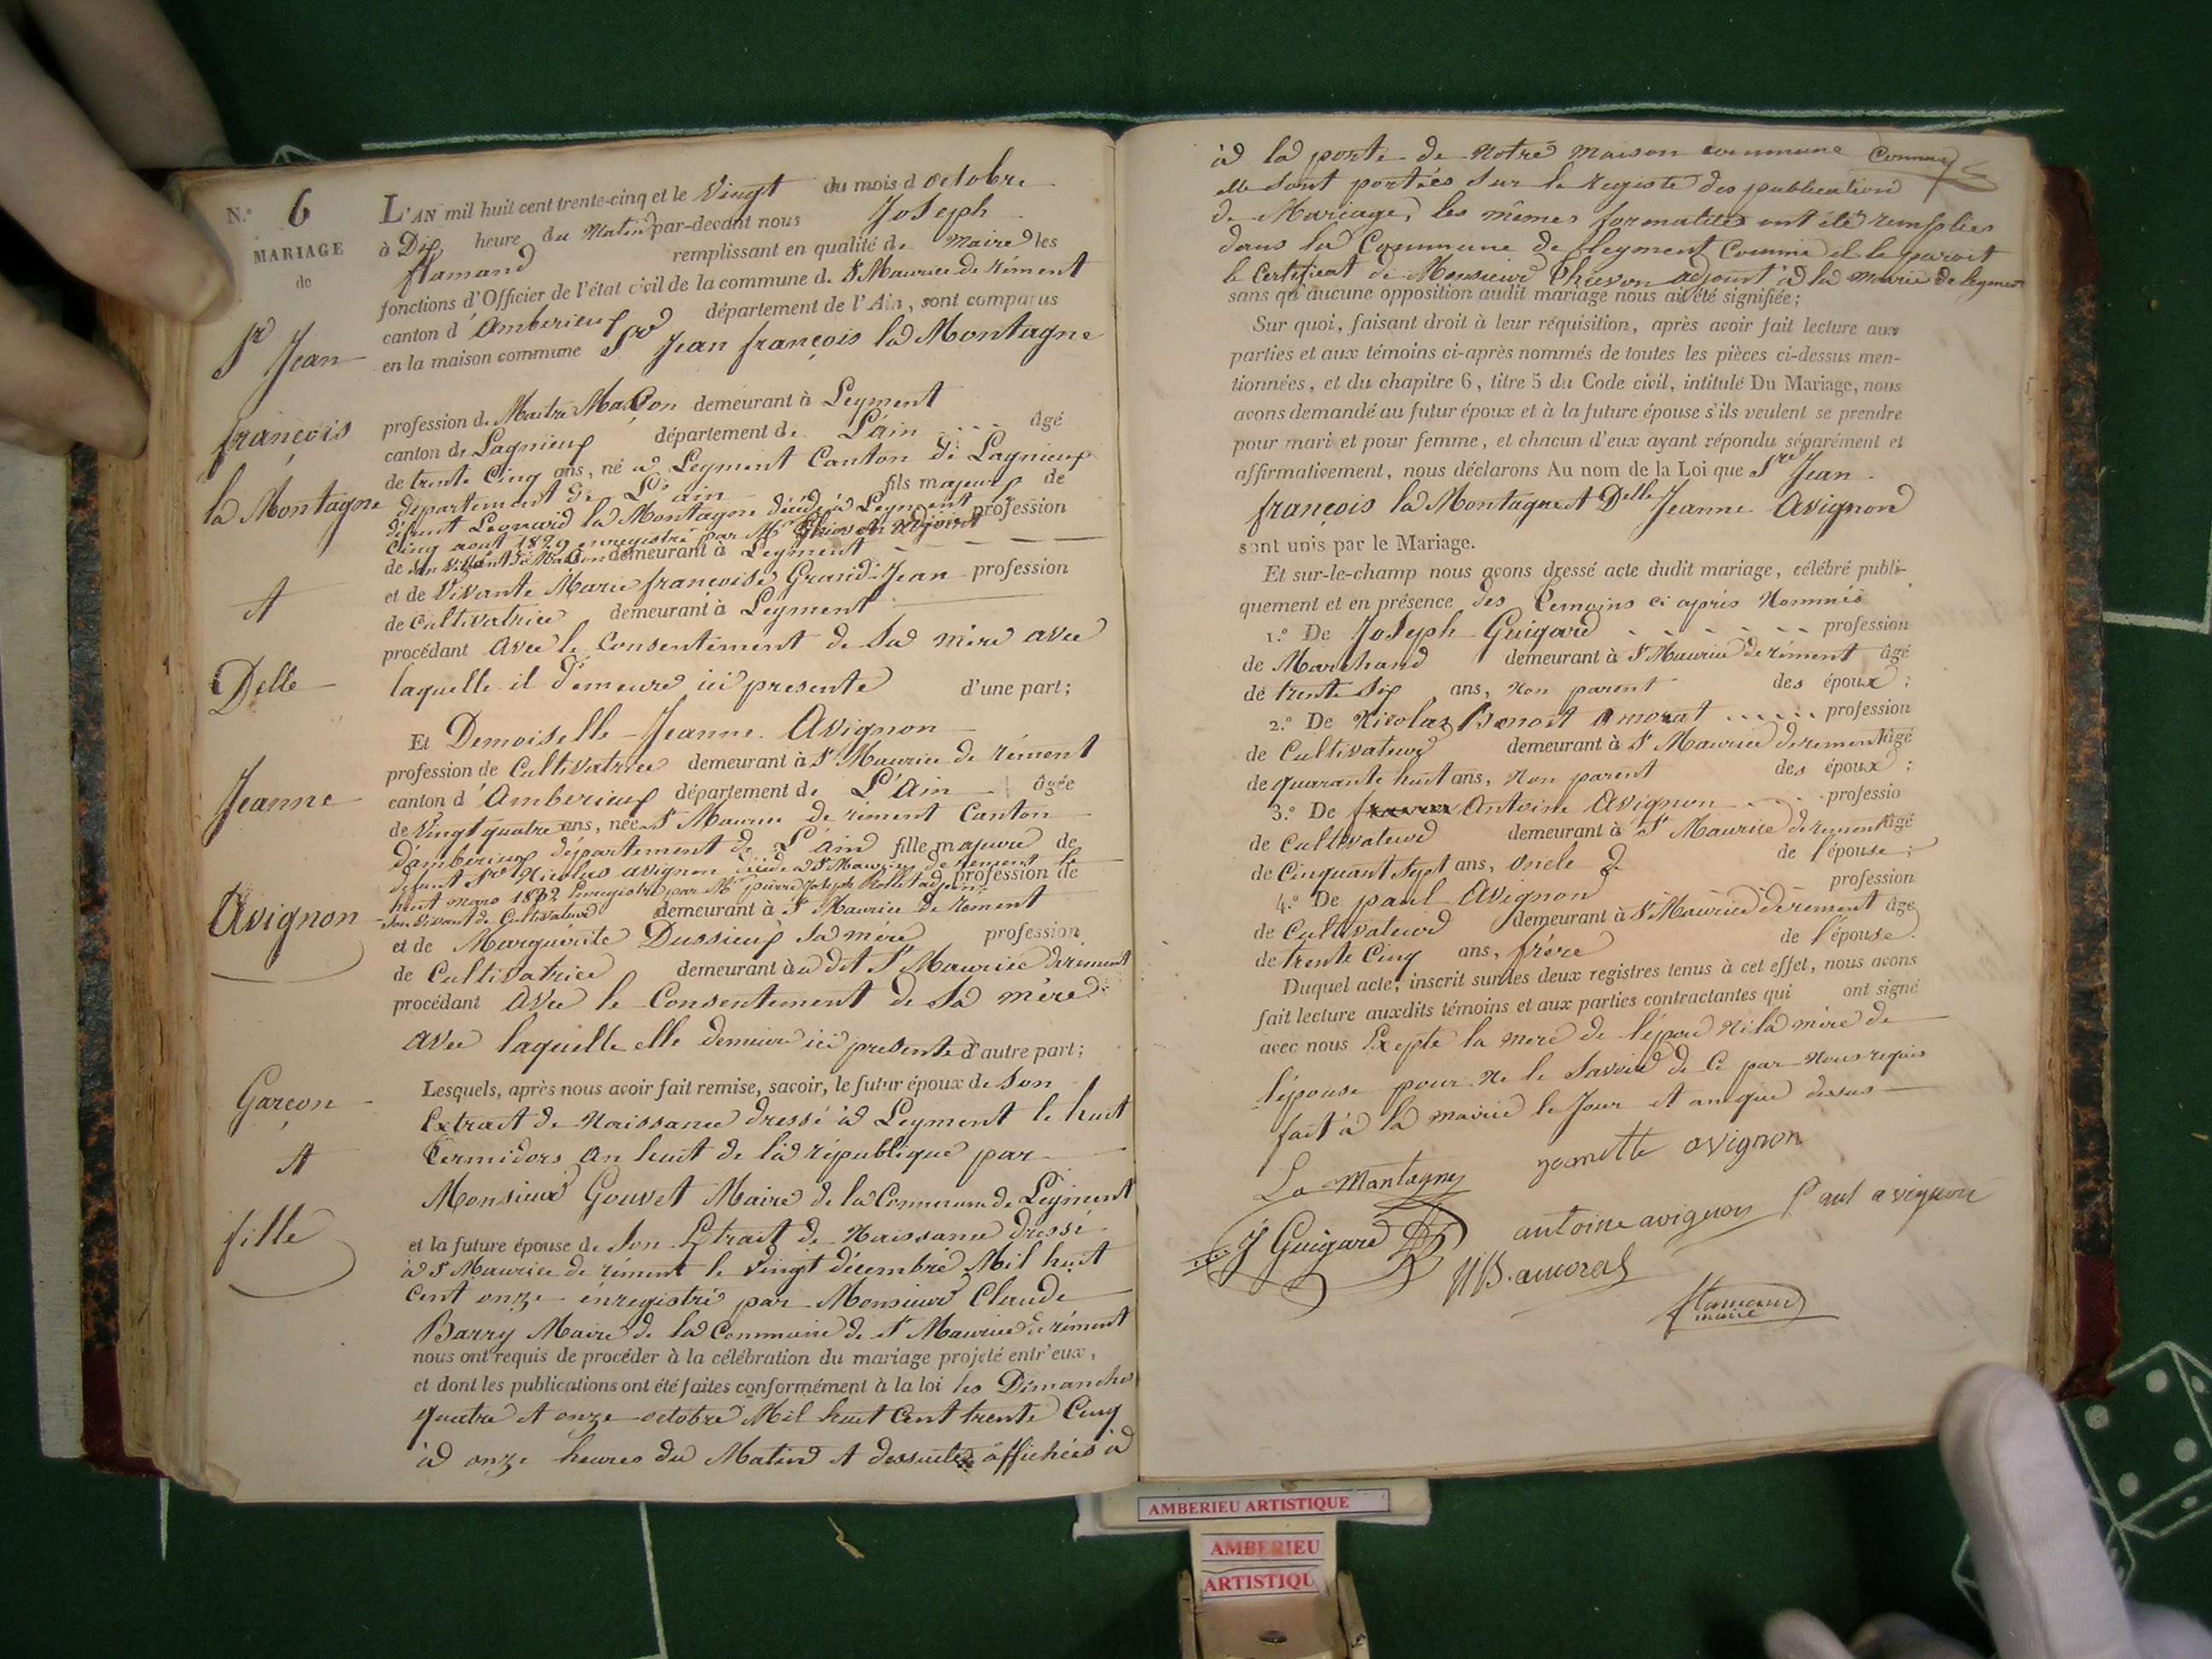 N.º 6
MARIAGE
de
Sr Jean
françois
la Montagne
et
Delle
Jeanne
Avignon
Garçon
et
fille
L'AN mil huit cent trente-cinq et le Vingt du mois d octobre
à Dix heure du Matin par-devant nous Joseph
flamand remplissant en qualité de Maire les
fonctions d'Officier de l'état civil de la commune d. St Maurice de rément
canton d'Amberieux département de l'Ain, sont comparus
en la maison commune Sr Jean françois la Montagne
profession d. Maitre Maçon demeurant à Leyment
canton de Lagnieux département de L'ain âgé
de trente Cinq ans, né a Leyment Canton de Lagnieux
département de L'ain fils majeur de
défunt Leonard la Montagne décédé à Leyment le
Cinq aout 1829 enregistré par Mr adjoint profession
de son vivant de Maçon demeurant à Leyment
et de Vivante Marie françoise Grand-Jean profession
de Cultivatrice demeurant à Leyment
procédant avec le Consentement de Sa mère avec
laquelle il demeure ici presente d'une part;
Et Demoiselle Jeanne Avignon
profession de Cultivatrice demeurant à St Maurice de rément
canton d'Amberieux département de L'Ain âgée
de Vingt quatre ans, née a St Maurice de rément Canton
d'amberieux département de L'ain fille majeure de
defunt Sr Nicolas avignon décédé a St Maurice de rément le
huit mars 1832 Enregistré par Mr pierre Joseph Rollet adjoint profession de
Son vivant de Cultivateur demeurant à St Maurice de rément
et de Marguérite Dussieux Sa mère profession
de Cultivatrice demeurant à u dit St Maurice de rément
procédant avec le Consentement de Sa mère
avec laquelle elle demeure ici presente d'autre part;
Lesquels, après nous avoir fait remise, savoir, le futur époux de Son
Extrait de Naissance dressé à Leyment le huit
Termidors an huit de la république par
Monsieur Gouvet Maire de la Commune de Leyment
et la future épouse de Son Extrait de Naissance dressé
à St Maurice de rément le Vingt décembre Mil huit
Cent onze enregistré par Monsieur Claude
Barry Maire de la Commune de St Maurice de rément
nous ont requis de procéder à la célébration du mariage projeté entr'eux,
et dont les publications ont été faites conformément à la loi les Dimanches
quatre et onze octobre Mil huit Cent trente Cinq
à onze heures du Matin et dessuite affichées à
à la porte de Notre Maison commune Comme
elle sont portées Sur le registe des publication
de Mariage, les mêmes formatites ont été remplies
dans la Commune de Leyment Comme il le paroit
le Certificat de Monsieur adjoint à la Mairie de leyment
sans qu'aucune opposition audit mariage nous ait été signifiée;
Sur quoi, faisant droit à leur réquisition, après avoir fait lecture aux
parties et aux témoins ci-après nommés de toutes les pièces ci-dessus men-
tionnées, et du chapitre 6, titre 5 du Code civil, intitulé Du Mariage, nous
avons demandé au futur époux et à la future épouse s'ils veulent se prendre
pour mari et pour femme, et chacun d'eux ayant répondu séparément et
affirmativement, nous déclarons Au nom de la Loi que Sr Jean
françois la Montagne et Delle Jeanne Avignon
sont unis par le Mariage.
Et sur-le-champ nous avons dressé acte dudit mariage, célébré publi-
quement et en présence des Temoins ci aprés Nommés
1.º De Joseph Guigard profession
de Marchand demeurant à St Maurice de rément âgé
de trente Six ans, Non parent des époux;
2.º De Nicolas Benoit amorat profession
de Cultivateur demeurant à St Maurice de rement âgé
de quarante huit ans, Non parent des époux;
3.º De Antoine Avignon professio
de Cultivateur demeurant à St Maurice de rement âgé
de Cinquant Sept ans, oncle de l'épouse;
4.º De paul Avignon profession
de Cultivateur demeurant à St Maurice de rement âge
de trente Cinq ans, frère de l'épouse.
Duquel acte, inscrit sur les deux registres tenus à cet effet, nous avons
fait lecture auxdits témoins et aux parties contractantes qui ont signé
avec nous Exepte la mere de l'épou Ni la mère de
l'épouse pour Ne le Savoir de Ce par Nous requis
fait à la mairie le Jour et an que dessus
La Montagne jeanette avignon
J Guigard antoine avignon Paul avignon
NB. amorat
flamand
maire
AMBERIEU ARTISTIQUE
AMBERIEU
ARTISTIQU